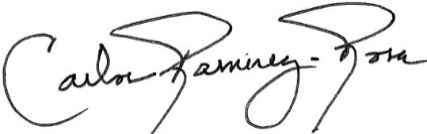 Carlos Ramirez-Rosa